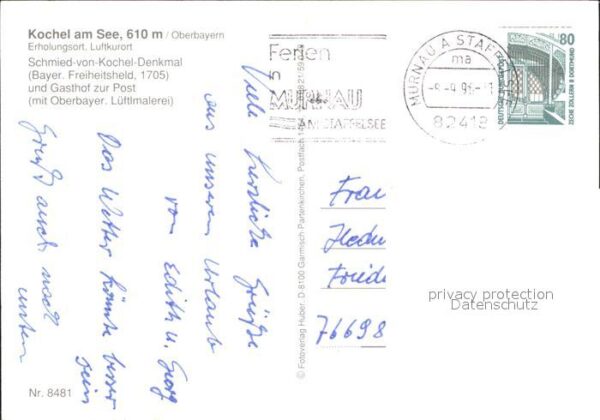 Kochel am See, 610 m / Oberbayern
Erholungsort. Luftkurort
Schmied-von-Kochel-Denkmal
(Bayer. Freiheitsheld, 1705)
und Gasthof zur Post
(mit Oberbayer. Lüftlmalerei)
Viele herzliche Grüße
aus unserem Urlaub
von Edith u. Georg
Das Wetter könnte besser
sein
Grüßt auch nach
unten
Nr. 8481
© Fotoverlag Huber. D-8100 Garmisch-Partenkirchen, Postfach
Ferien
MURNAU
AM STAFFELSEE
MURNAU A STAFFELSEE
ma
82418
80
DEUTSCHE BUNDESPOST
ZECHE ZOLLERN II DORTMUND
Frau
Hedw
Friede
76698
privacy protection
Datenschutz